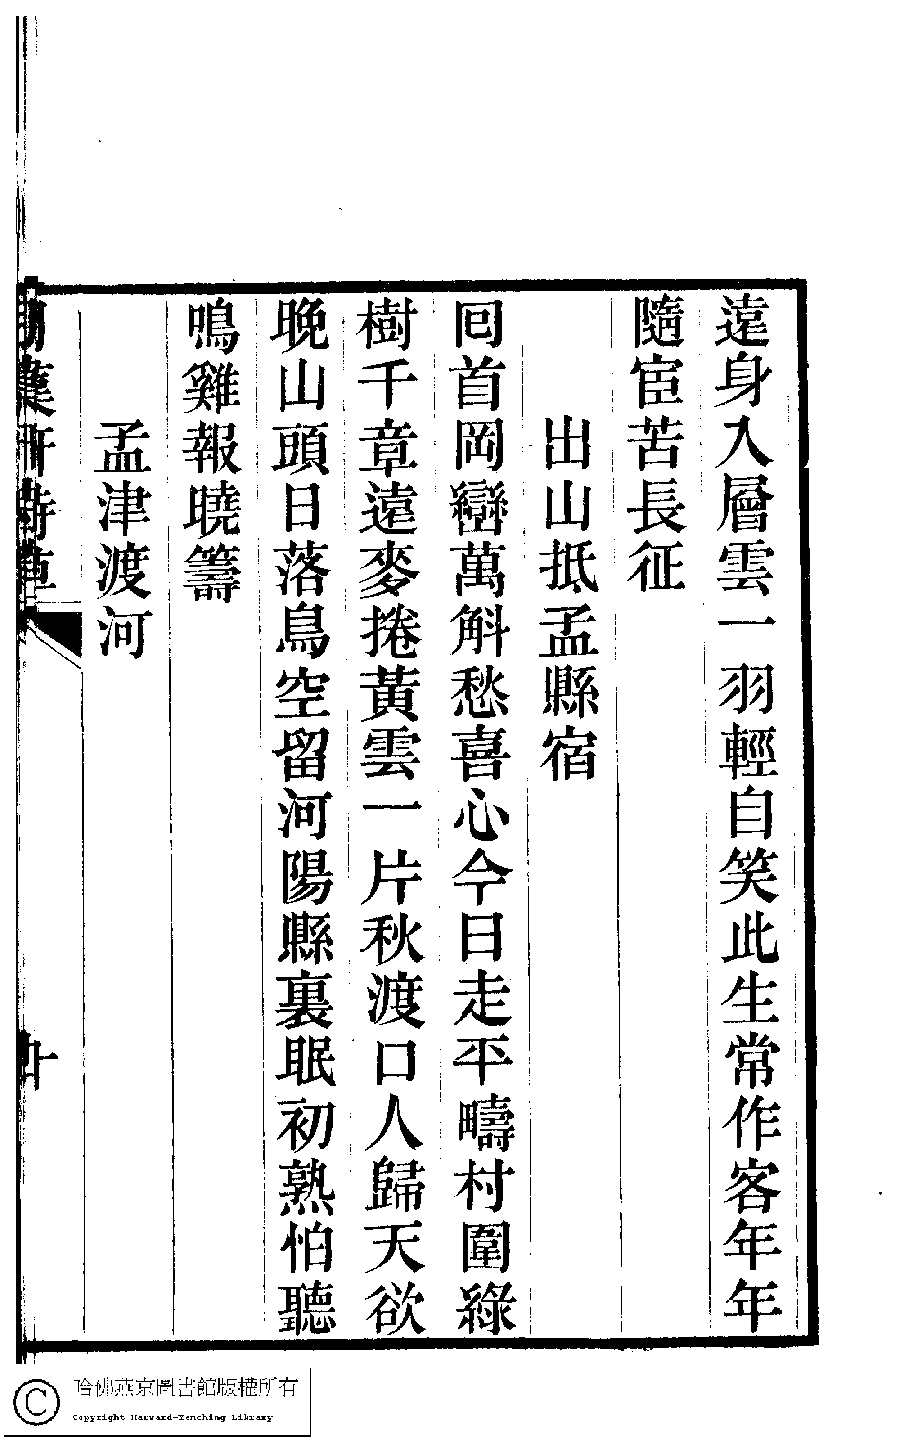 遠身入層雲一羽輕自笑此生常作客年年
隨宦苦長征
出山抵孟縣宿
回首岡巒萬斛愁喜心今日走平疇村圍綠
樹千章遠麥捲黃雲一片秋渡口人歸天欲
晚山頭日落鳥空留河陽縣裏眠初熟怕聽
鳴雞報曉籌
孟津渡河
詩草
廿
哈佛燕京圖書館版權所有
Copyright Harvard-Yenching Library